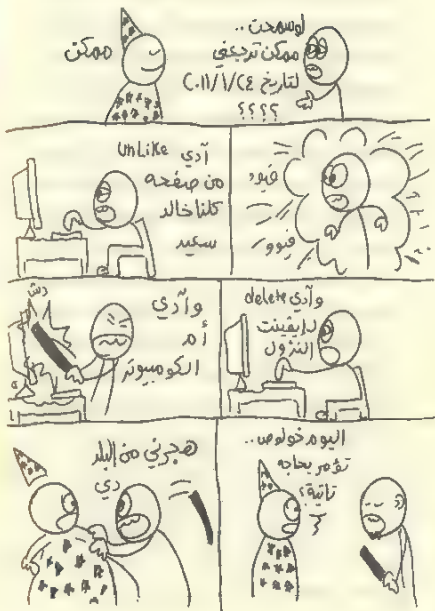 لوسمحت..
ممكن ترجعني
لتاريخ ٢٠١١/١/٢٤
؟؟؟؟
ممكن
فيوو
فيوو
آدي unlike
من صفحه
كلنا خالد
سعيد
وآدي delete
لإيفينت
النزول
وآدي
أم
الكومبيوتر
دش
اليوم خلوص..
تؤمر بحاجه
تانية؟
هجرني من البلد
دي